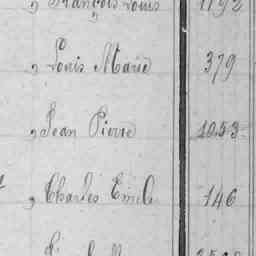 „ François Louis 1192
„ Louis Marie 379
„ Jean Pierre 1053
„ Charles Emile 146